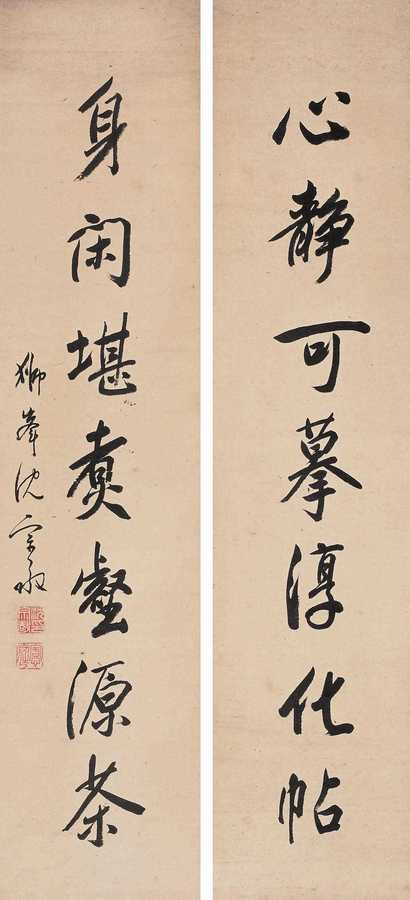 心静可摹淳化帖
身闲堪煮壑源茶
狮峰沈宗敬